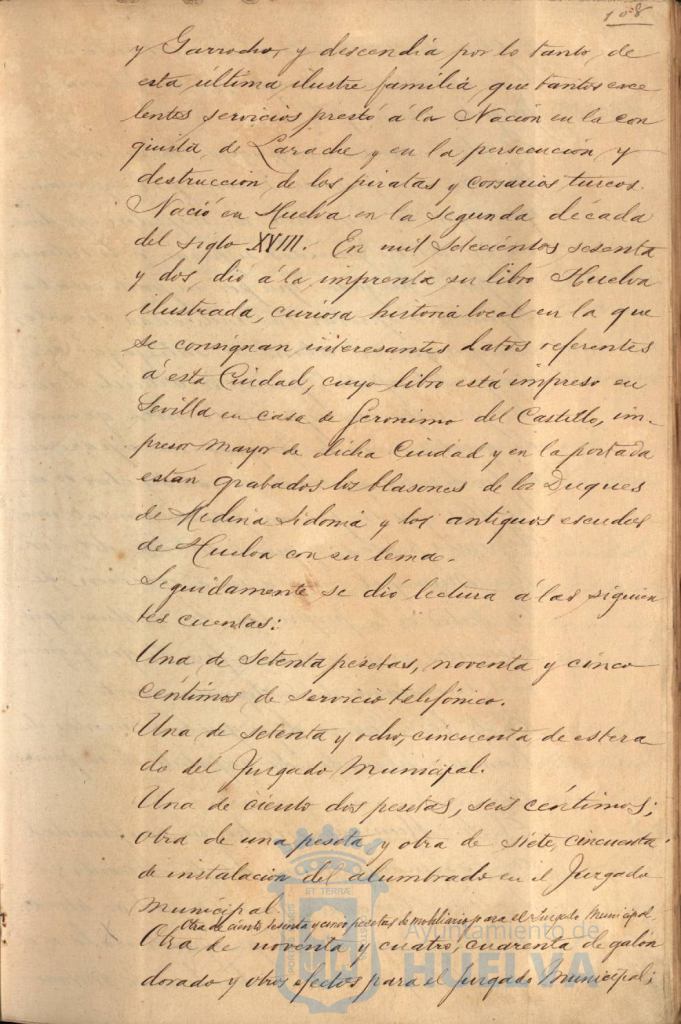 108
y Garrocho, y descendia por lo tanto, de
esta última ilustre familia, que tantos exce
lentes servicios prestó á la Nación en la con
quista de Larache y en la persecución y
destrucción de los piratas y corsarios turcos.
Nació en Huelva en la segunda década
del siglo XVIII. En mil setecientos sesenta
y dos, dio á la imprenta su libro Huelva
ilustrada, curiosa historia local en la que
se consignan interesantes datos referentes
á esta Ciudad, cuyo libro está impreso en
Sevilla en casa de Geronimo del Castillo, im-
presor mayor de dicha Ciudad y en la portada
estan grabados los blasones de los Duques
de Medina Sidonia y los antiguos escudos
de Huelva con su lema.
Seguidamente se dió lectura á las siguien
tes cuentas:
Una de setenta pesetas, noventa y cinco
céntimos de servicio telefónico.
Una de setenta y ocho, cincuenta de estera
do del Juzgado Municipal.
Una de ciento dos pesetas, seis céntimos;
otra de una peseta y otra de siete, cincuenta
de instalación del alumbrado en el Juzgado
Municipal.
Otra de ciento sesenta y cinco pesetas de mobiliario para el Juzgado Municipal.
Otra de noventa y cuatro, cuarenta de galon
dorado y otros efectos para el Juzgado Municipal;
ET TERRÆ
Ayuntamiento de
HUELVA